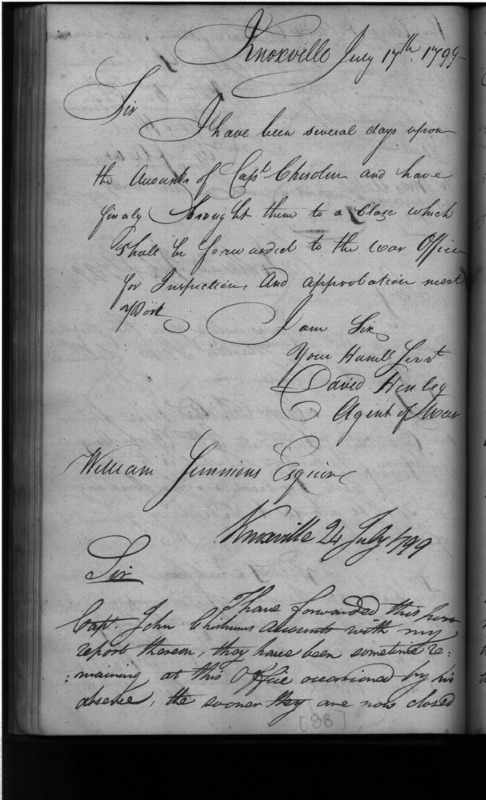 Knoxville July 17th 1799
Sir
I have been several days upon
the Accounts of Capt Chisolm and have
finaly brought them to a Close which
shall be forwarded to the War Office
for Inspection And approbation next
Post
I am Sir
Your Humll Servt
David Henley
Agent of War
William Simmons Esquire
Knoxville 24 July 1799
Sir
I have forwarded this hour
Capt John Chishums accounts with my
report thereon, they have been sometime re:
:maining at this Office occasioned by his
absence, the sooner they are now closed
[88]